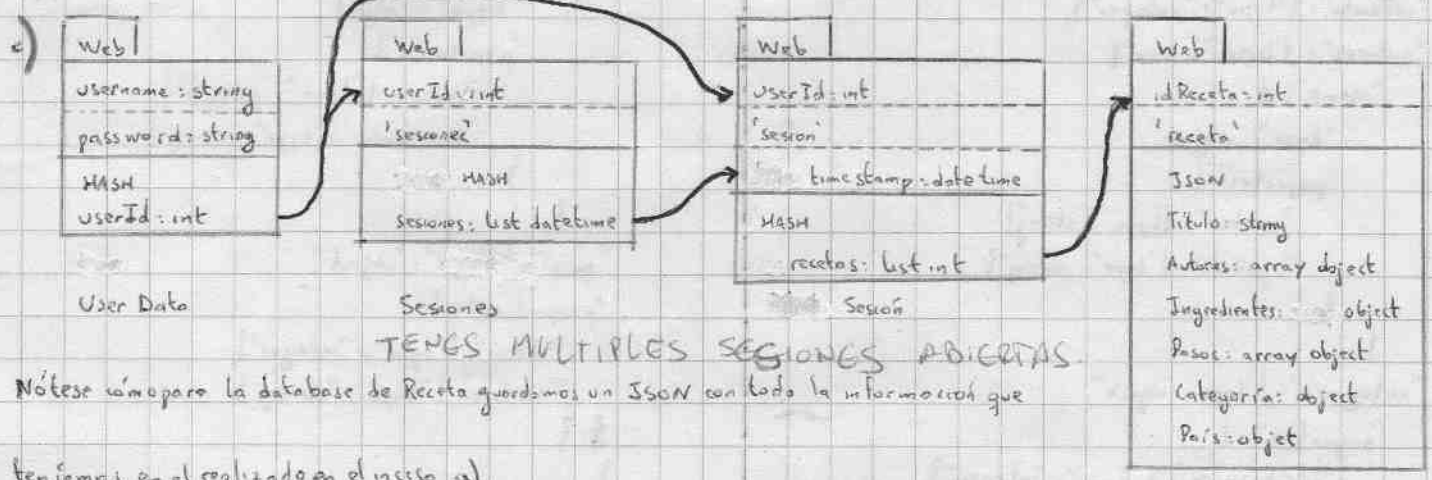 c)
Web
username : string
password : string
HASH
userId : int
User Data
Web
userId : int
'sesiones'
HASH
sesiones : list datetime
Sesiones
Web
userId : int
'sesion'
timestamp : datetime
HASH
recetas : list int
Sesión
Web
idReceta : int
'receta'
JSON
Título : string
Autores : array object
Ingredientes : object
Pasos : array object
Categoría : object
País : objet
TENES MULTIPLES SESIONES ABIERTAS.
Nótese cómo para la database de Receta guardamos un JSON con toda la información que
teníamos en el realizado en el inciso a)